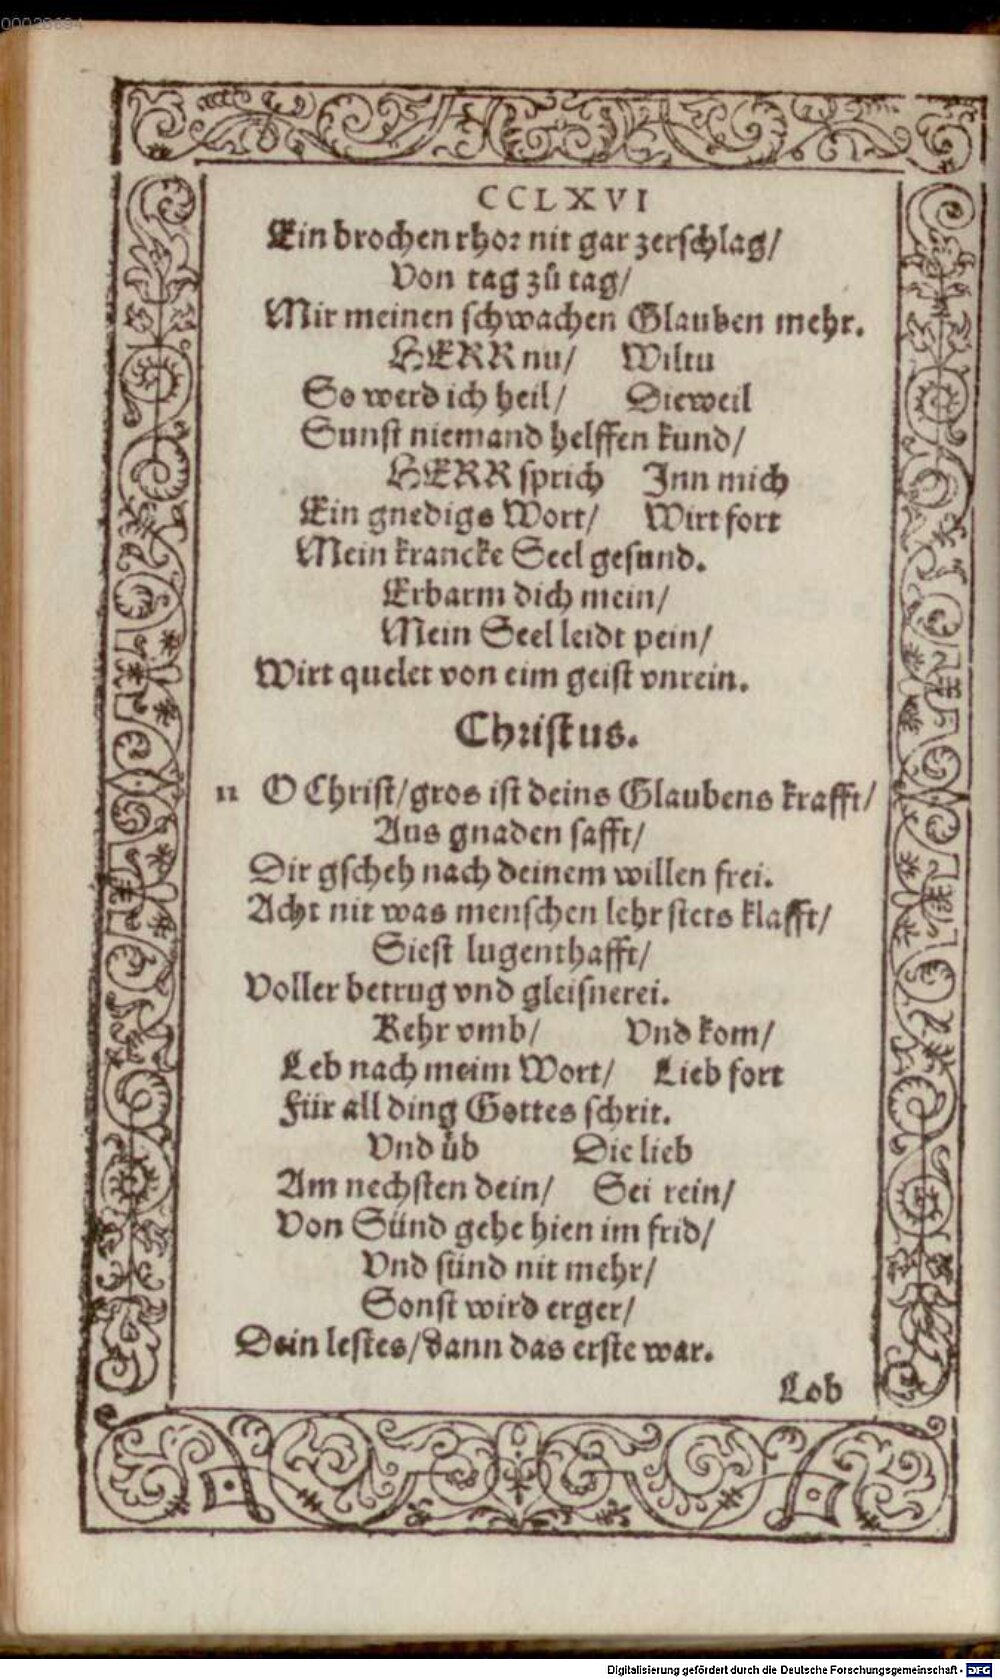 00028694
CCLXVI
Ein brochen rhor nit gar zerschlag/
Von tag zů tag/
Mir meinen schwachen Glauben mehr.
HERR nu/ Wiltu
So werd ich heil/ Dieweil
Sunst niemand helffen kund/
HERR sprich Inn mich
Ein gnedigs Wort/ Wirt fort
Mein krancke Seel gesund.
Erbarm dich mein/
Mein Seel leidt pein/
Wirt quelet von eim geist vnrein.
Christus.
11 O Christ/gros ist deins Glaubens krafft/
Aus gnaden safft/
Dir gscheh nach deinem willen frei.
Acht nit was menschen lehr stets klafft/
Siest lugenthafft/
Voller betrug vnd gleisnerei.
Kehr vmb/ Vnd kom/
Leb nach meim Wort/ Lieb fort
Für all ding Gottes schrit.
Vnd üb Die lieb
Am nechsten dein/ Sei rein/
Von Sünd gehe hien im frid/
Vnd sünd nit mehr/
Sonst wird erger/
Dein lestes/dann das erste war.
Lob
Digitalisierung gefördert durch die Deutsche Forschungsgemeinschaft - DFG